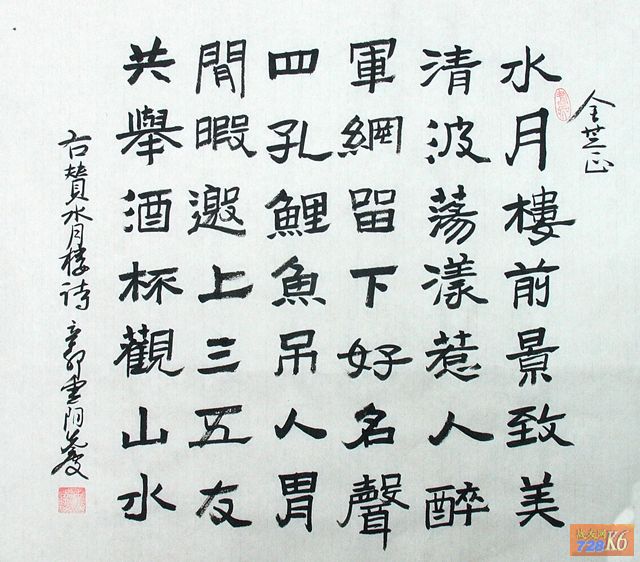 水月樓前景致美
清波蕩漾惹人醉
軍網留下好名聲
四孔鯉魚吊人胃
閒暇邀上三五友
共舉酒杯觀山水
右贊水月楼诗 辛卯
战友网
728 K6